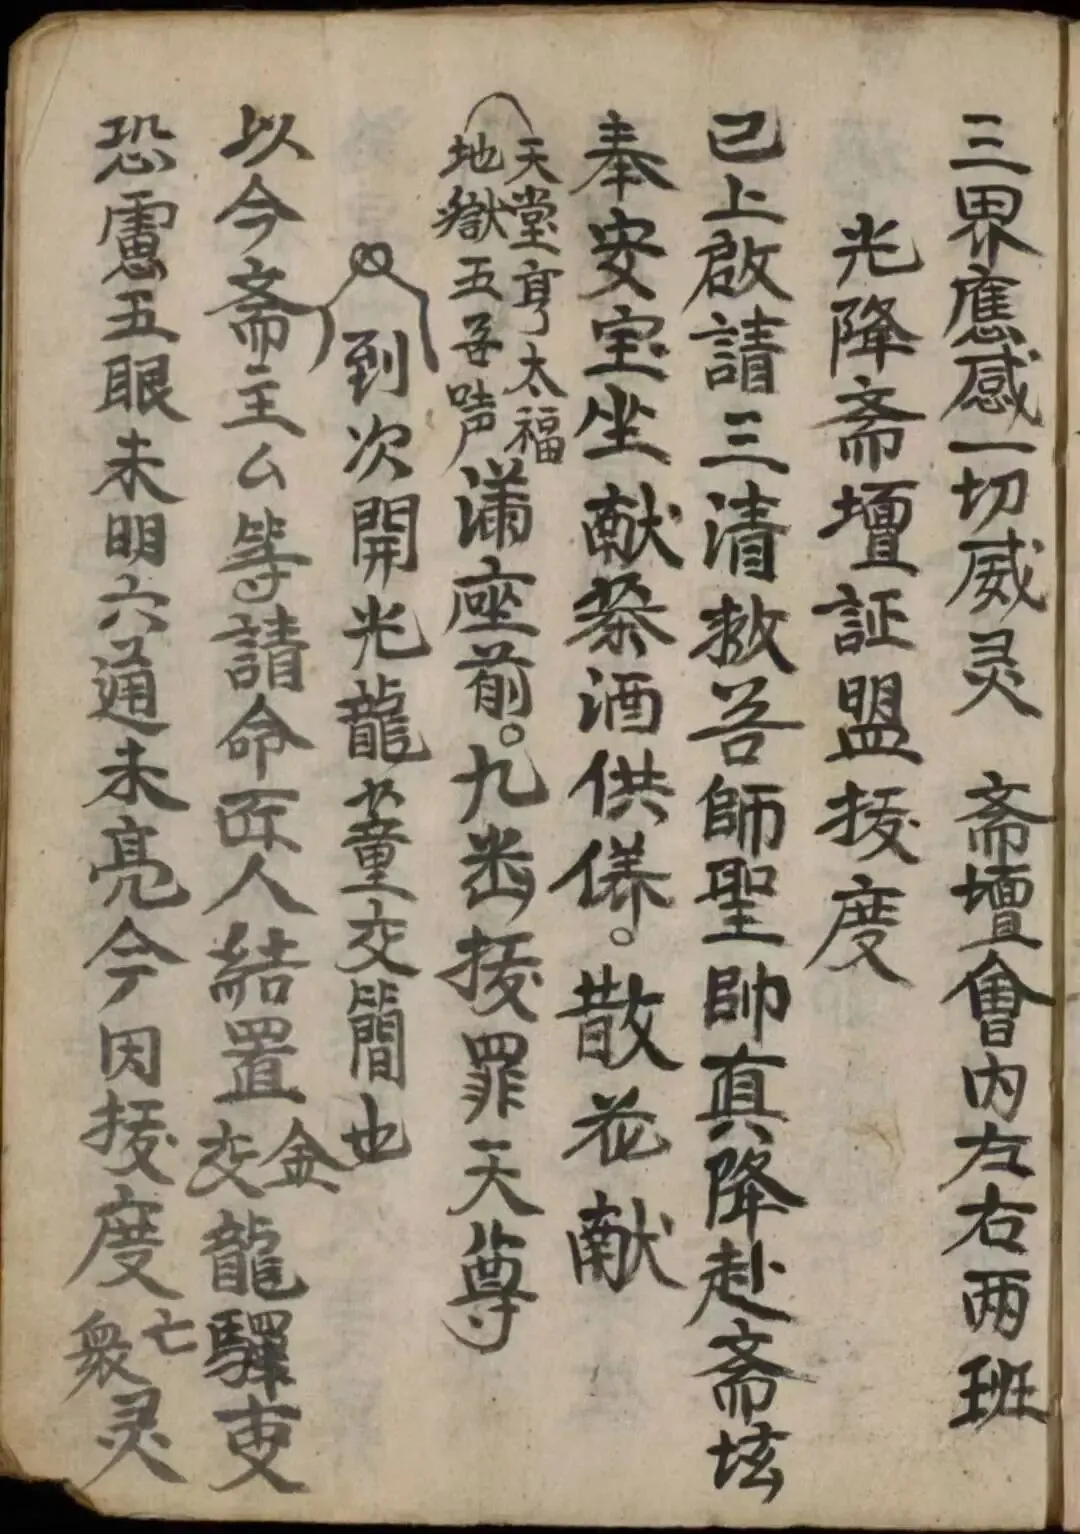 三界應感一切威灵　斋壇會内左右两班
光降斋壇証盟拔度
已上啟請三清救苦師聖帥真降赴斋坛
奉安宝坐献茶酒供儀。散花献
天堂享太福
地獄五苦声
满座前。九幽拔罪天尊
到次開光龍童交簡也
以今斋主厶等請命匠人結置金交龍驛吏
恐慮五眼未明六通未亮今因拔度亡衆灵